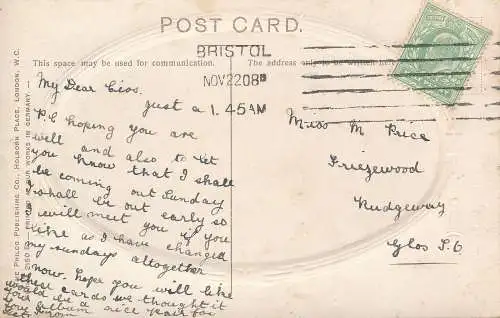 POST CARD.
This space may be used for communication.
The address only to be written here
BRISTOL
NOV 22 08
1. 45 AM
My Dear Ciss.
just a
P.C hoping you are
well and also to let
you know that I shall
be coming out Sunday
I shall be out early so
I will meet you if you
like as I have changed
my sundays altogether
now. hope you will like
these cards we thought it
would be a nice pair for
your album
Miss M Price
Friezewood
Rudgeway
Glos
PHILCO PUBLISHING CO., HOLBORN PLACE, LONDON, W.C.